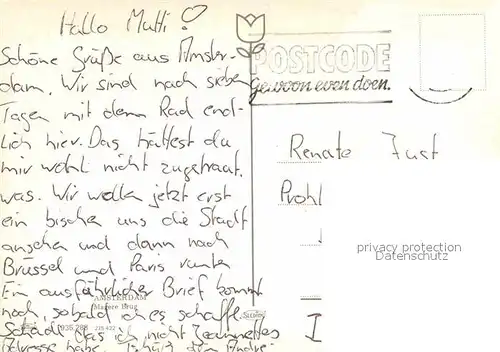 Hallo Mutti!
Schöne Grüße aus Amster-
dam. Wir sind nach sieben
Tagen mit dem Rad end-
lich hier. Das hättest du
mir wohl nicht zugetraut,
was. Wir wollen jetzt erst
ein bischen uns die Stadt
ansehen und dann nach
Brüssel und Paris runter
Ein ausführlicher Brief kommt
noch, sobald ich es schaffe.
Schade das ich nicht Jeannettes
Adresse habe.
AMSTERDAM
Magere Brug
POSTCODE
Gewoon even doen.
Renate Just
Prohl
I
privacy protection
Datenschutz